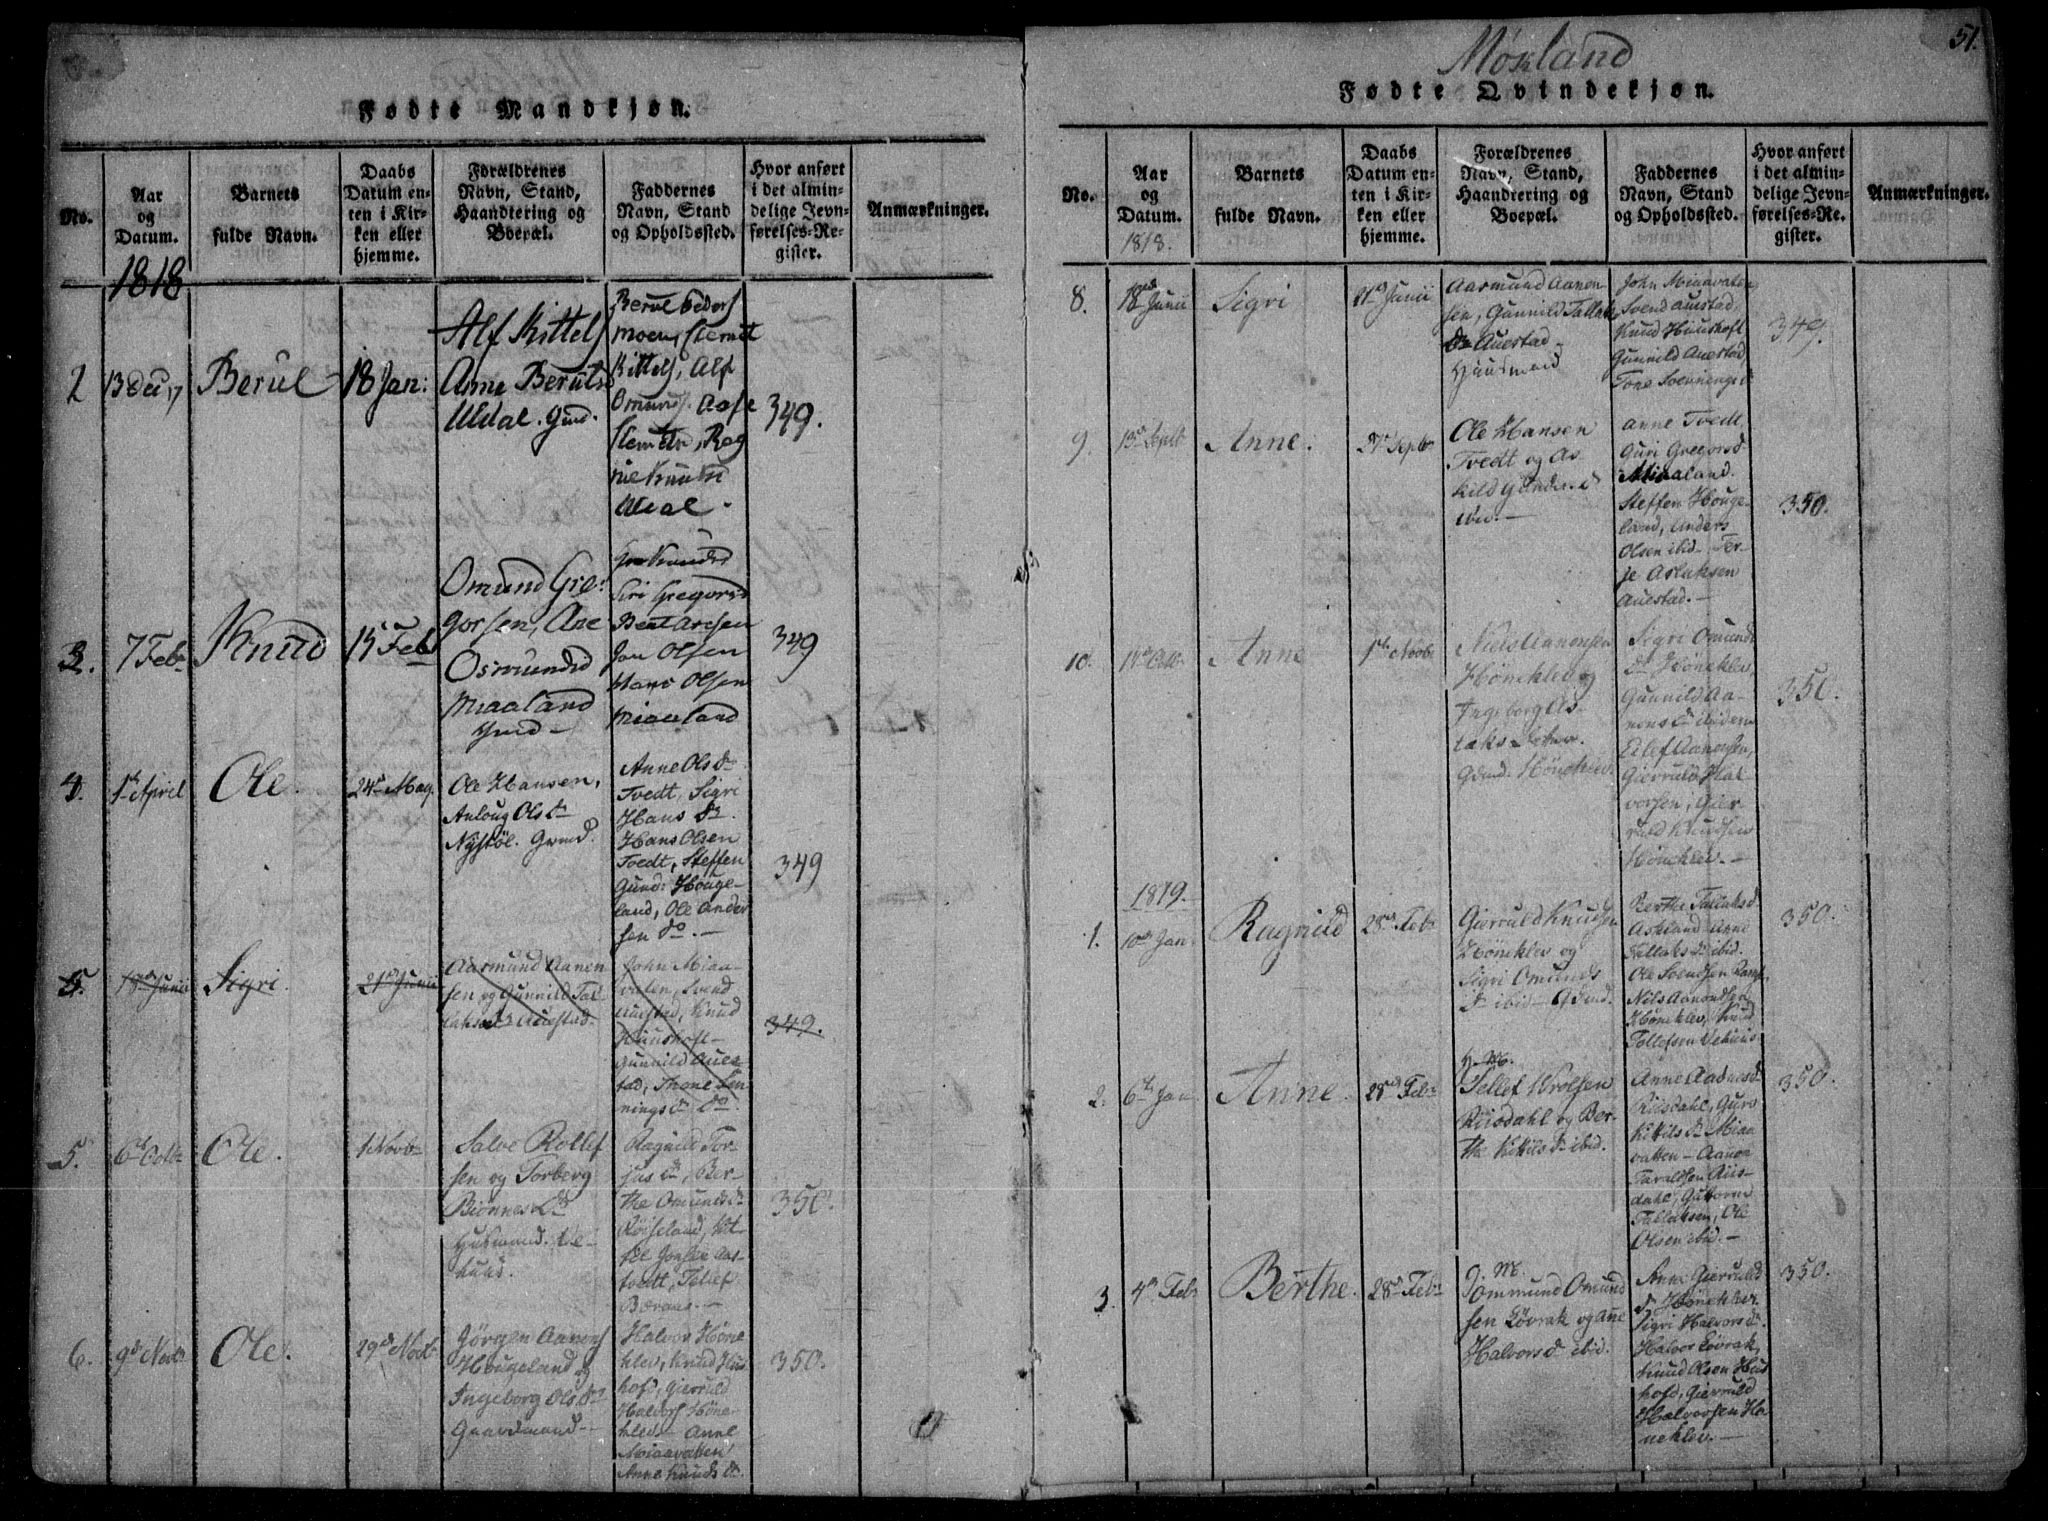 Mösland
51.
Fødte Mandkjøn.
No.
Aar og Datum.
Barnets fulde Navn.
Daabs Datum enten i Kirken eller hjemme.
Forældrenes Navn, Stand, Haandtering og Boepæl.
Faddernes Navn, Stand og Opholdssted.
Hvor anført i det almindelige Jevnførelses=Register.
Anmærkninger.
1818
2
13 Dec 17
Berul
18 Jan:
Alf Kittels
Anne Beruls
Uldal. Gmd.
Berul
Moen,
Kittels, Alf
Omunds. Aase
Knuts
349.
3.
7 Feb.
Knud
15 Feb
Omund Gre:
gorsen, Ane
Osmundsd
Miaaland
Gmd -
Siri Gregorsd
Bent Aresen
Jon Olsen
Hans Olsen
Miaaland
349
4.
1ste April
Ole.
24de May.
Ole Hansen,
Anloug Ols Dr
Nystöl. Grmd.
Anne Ols Dr
Tvedt, Sigri
Hans Dr.
Hans Olsen
Tvedt, Steffen
Gund: Houge-
land, Ole Ander
sen do. -
349
5.
18de Junii
Sigri.
21de Junii
Aasmund Aanen
sen, og Gunnild Tal-
laksd Auestad.
John Miaa-
vaten, Svend
Auestad, Knud
Huushoft-
Gunnild Aues-
tad, Thone
nings Dr do.
349.
5.
6te Octb
Ole.
1 Novb
Salve Rollef
sen og Torberg
Biönnes Dr
Husmand.
Ragnild Tor-
jus Dr, Ber-
the Omunds Dr
Röiseland,
Aas-
tvedt, Tellef
350.
6.
9de Novb
Ole.
29de Novb
Görgen Aanons
Hougeland og
Ingeborg Ols Dr
Gaardmand -
Halvor Höne
klev, Knud Hus
hoft, Gierruld
Halvors Höne-
klev - Anne
Miaavatten,
Anne Knuds Dr.
350.
Fødte Qvindekjøn.
No.
Aar og Datum.
1818.
Barnets fulde Navn.
Daabs Datum enten i Kirken eller hjemme.
Forældrenes Navn, Stand, Haandtering og Boepæl.
Faddernes Navn, Stand og Opholdssted.
Hvor anført i det almindelige Jevnførelses=Register.
Anmærkninger.
8.
18de Junii
Sigri
21de Junii
Aasmund Aanen
sen, Gunnild Tallaks
Dr Auestad -
Huusmand
John Miaavaten,
Svend Auestad,
Knud Huushoft
Gunnild Auestad
Tone Svennings d
349.
9.
13de Septb
Anne.
27de Septb
Ole Hansen
Tvedt og As
kild Gunders d
ibid. -
Anne Tvedt,
Guri Gregorsd
Miaaland.
Steffen Houge-
land, Anders
Olsen ibid - Ter-
je Aslaksen
Auestad. -
350.
10.
Octb.
Anne
1ste Novb
Niels Aanonsen
Höneklev og
Ingeborg As-
laks Datter.
Gdmd. Höneklev
Sigri Omunds
Dr Höneklev,
Gunnild Aa-
nons Dr ibidem
Alef Aanonsen,
Gierruld Hal-
vorsen, Gier
ruld Knudsen
Höneklev. -
350.
1819.
1.
10de Jan
Ragnild
28de Feb
Gierruld Knudsen
Höneklev og
Sigri Omunds
Dr ibid - Gdmd.
Berthe Tallaks d
Askland Anne
Tallaks Dr ibid.
Ole Svendsen
Nils Aanondsen
Höneklev, Knud
Tollefsen
350.
2.
6te Jan
Anne.
28de Feb
H. M.
Tellef Wrolsen
Riisdahl og Ber-
the Kittils Dr ibid.
Anne Aadnes d
Riisdahl, Guro
Kittils Dr Miaa
vatten - Aanon
Taraldsen Riis-
dahl, Guttorm
Tallaksen, Ole
Olsen ibid. -
350.
3.
4de Feb
Berthe.
28de Feb
J. M.
Ommund Omund
sen Lövrak og Ane
Halvors d ibid.
Anne Gierrulds
Dr Hönekler
Sigri Halvors d.
Halvor Lövrak,
Knud Olsen Hus
hoft, Gierruld
Halvorsen Hö
neklev. -
350.